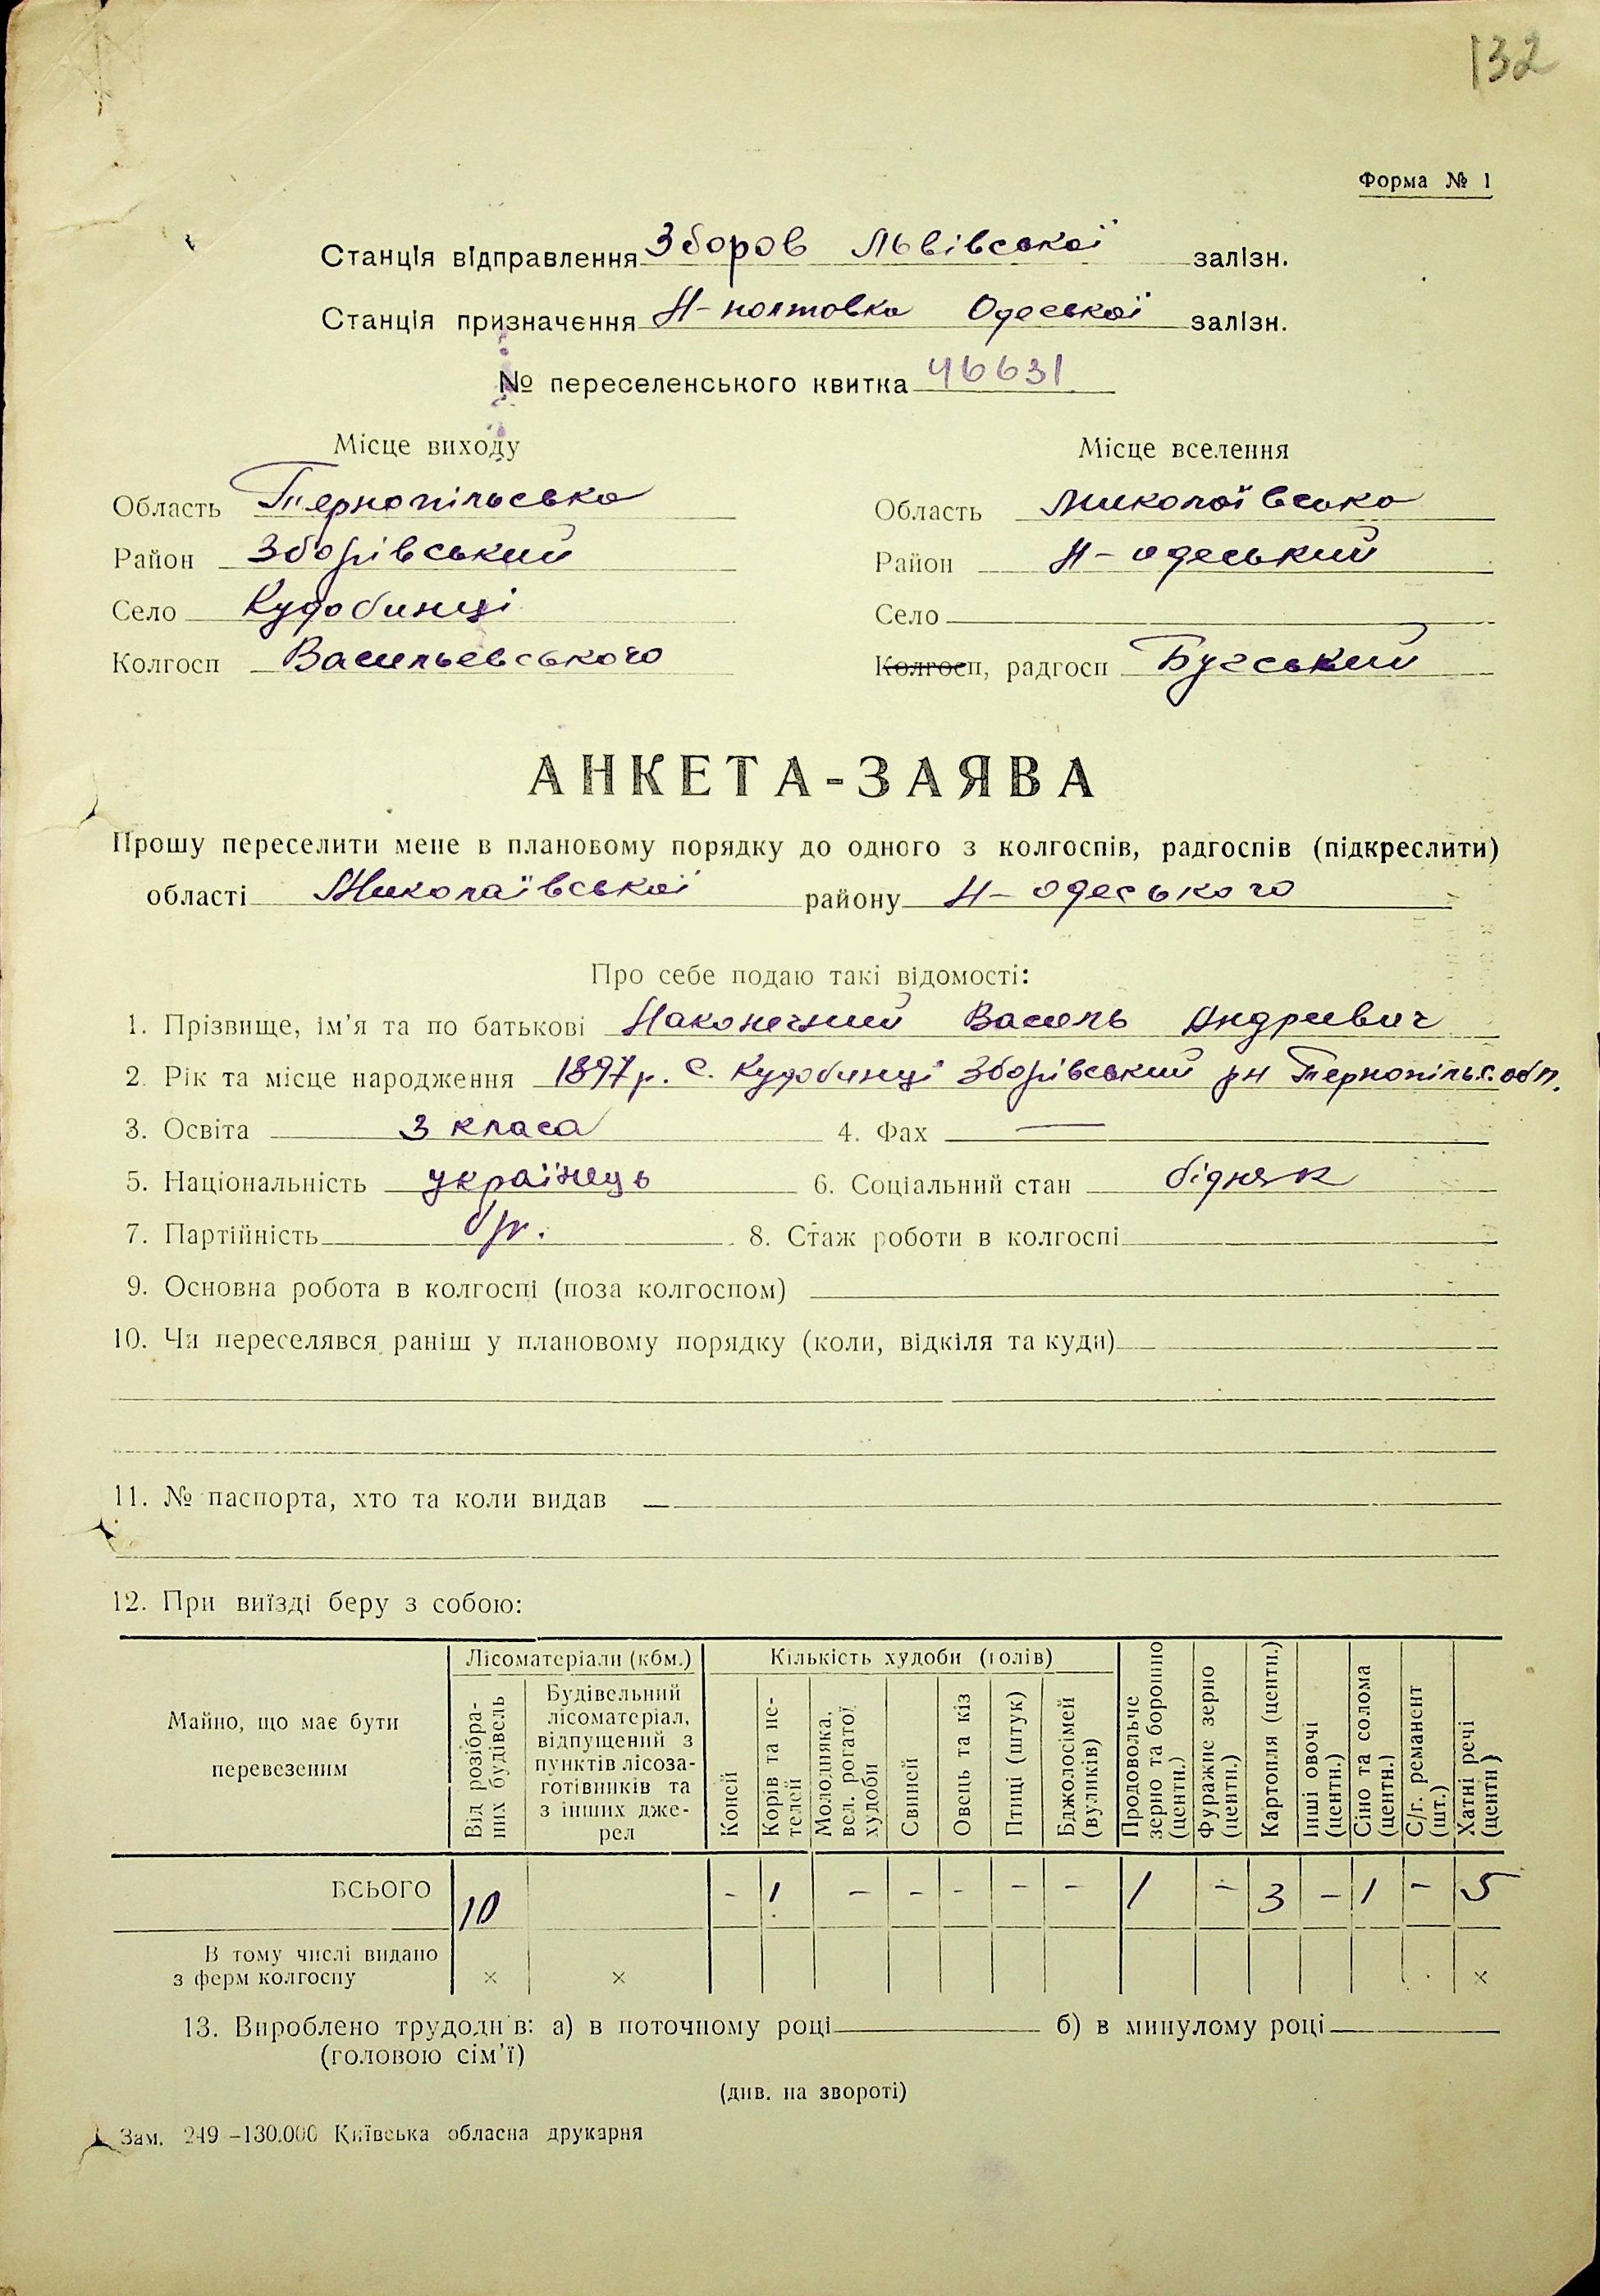 132
Форма № 1
Станція відправлення Зборов Львівської залізн.
Станція призначення Н-полтовка Одеської залізн.
№ переселенського квитка 46631
Місце виходу
Область Тернопільська
Район Зборівський
Село Кудобинці
Колгосп Васильевського
Місце вселення
Область Миколаївська
Район Н-одеський
Село
Колгосп, радгосп Бугський
АНКЕТА-ЗАЯВА
Прошу переселити мене в плановому порядку до одного з колгоспів, радгоспів (підкреслити)
області Миколаївської району Н-одеського
Про себе подаю такі відомості:
1. Прізвище, ім’я та по батькові Наконечний Василь Андреевич
2. Рік та місце народження 1897 р. с. Кудобинці Зборівський рн Тернопільс. обл.
3. Освіта 3 класа 4. Фах —
5. Національність українець 6. Соціальний стан бідняк
7. Партійність б/п. 8. Стаж роботи в колгоспі
9. Основна робота в колгоспі (поза колгоспом)
10. Чи переселявся раніш у плановому порядку (коли, відкіля та куди)
11. № паспорта, хто та коли видав
12. При виїзді беру з собою:
Майно, що має бути перевезеним
Лісоматеріали (кбм.)
Від розібраних будівель
Будівельний лісоматеріал, відпущений з пунктів лісозаготівників та з інших джерел
Кількість худоби (голів)
Коней
Корів та нетелей
Молодняка, вел. рогатої худоби
Свиней
Овець та кіз
Птиці (штук)
Бджолосімей (вуликів)
Продовольче зерно та борошно (центн.)
Фуражне зерно (центн.)
Картопля (центн.)
Інші овочі (центн.)
Сіно та солома (центн.)
С/г. реманент (шт.)
Хатні речі (центн)
ВСЬОГО 10 - 1 - - - - - 1 - 3 - 1 - 5
В тому числі видано
з ферм колгоспу × × ×
13. Вироблено трудоднів: а) в поточному році б) в минулому році
(головою сім’ї)
(див. на звороті)
Зам. 249–130.000 Київська обласна друкарня